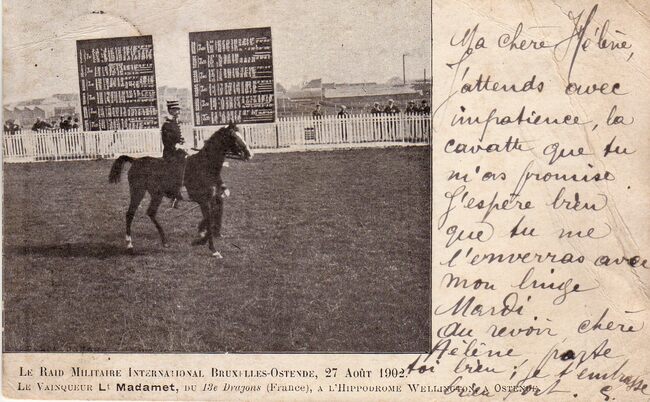 Ma chère Hélène,
J'attends avec
impatience, la
cavatte que tu
m'as promise
J'espère bien
que tu me
l'enverras avec
mon linge
Mardi
Au revoir chère
Hélène, porte
toi bien; je t'embrasse
bien fort. G.
LE RAID MILITAIRE INTERNATIONAL BRUXELLES-OSTENDE, 27 AOÛT 1902.
LE VAINQUEUR Lt Madamet, DU 13e Dragons (France), A L'HIPPODROME WELLINGTON, A OSTENDE